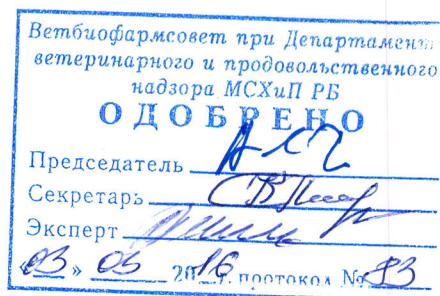 Ветбиофармсовет при Департамент
ветеринарного и продовольственного
надзора МСХиП РБ
ОДОБРЕНО
Председатель
Секретарь
Эксперт
«03» 05 2016 г. протокол № 83